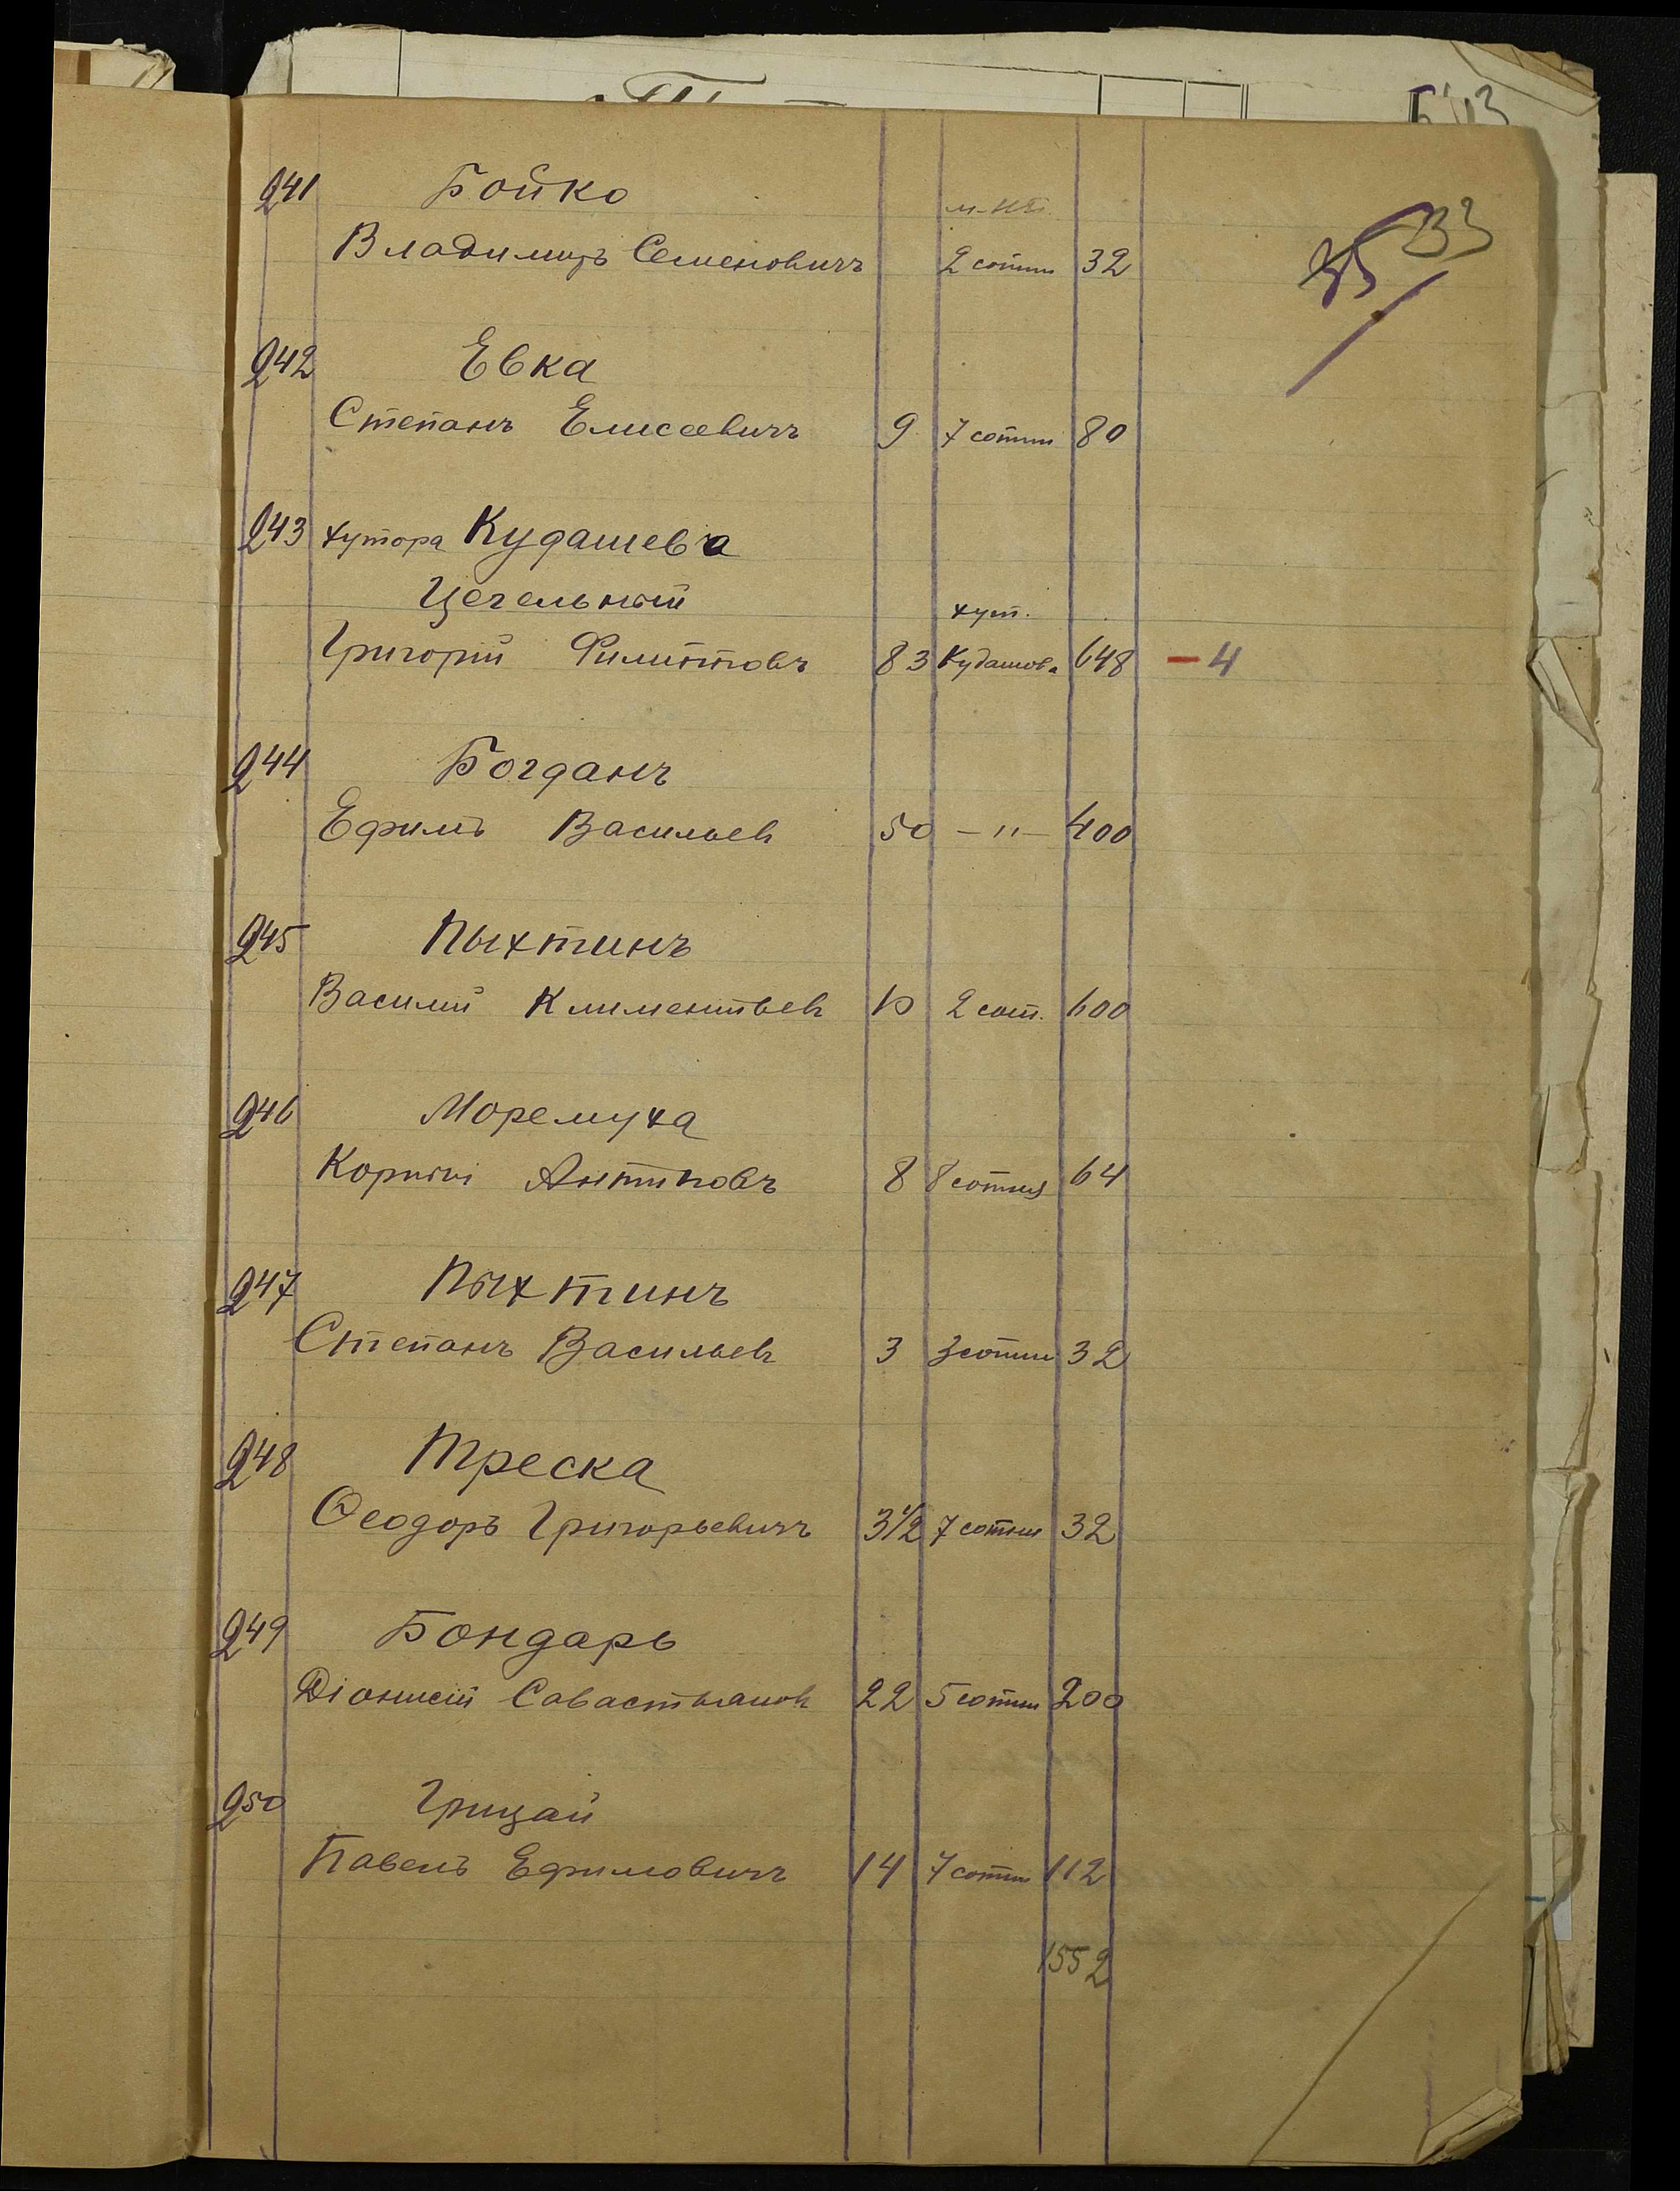 35 33
241 Бойко
Владимиръ Семеновичъ 2 сотни 32
242 Евка
Степанъ Елисеевичъ 9 7 сотни 80
243 хутора Кудашева
Цегельный хут.
Григорій Филипповъ 83 Кудашова 648 — 4
244 Богданъ
Ефимъ Васильев 50 —"— 400
245 Пыхтинъ
Василий Климентьев 2 сот. 600
246 Моремуха
Корній Антиповъ 8 8 сотня 64
247 Пыхтинъ
Степанъ Васильев 3 3 сотни 32
248 Треска
Ѳеодоръ Григорьевичъ 3 1/2 7 сотни 32
249 Бондарь
Діонисій Савастьянов 22 5 сотни 200
250 Грицай
Павелъ Ефимовичъ 14 7 сотни 112
1552